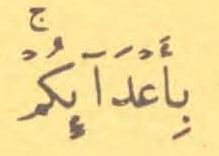 بِأَعْدَآئِكُمْۚ